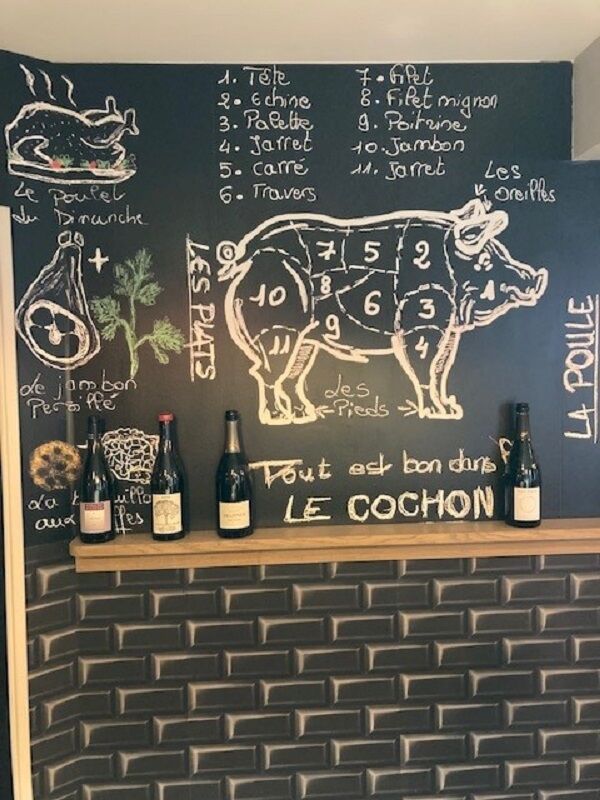 1. Tête
2. Echine
3. Palette
4. Jarret
5. Carré
6. Travers
7. Filet
8. Filet mignon
9. Poitrine
10. Jambon
11. Jarret
Les
oreilles
Le poulet
du Dimanche
+
LES PLATS
7
5
2
8
6
1
10
3
9
11
4
Les
Pieds
Le jambon
Persillé
LA POULE
Tout est bon dans
LE COCHON
La
aux